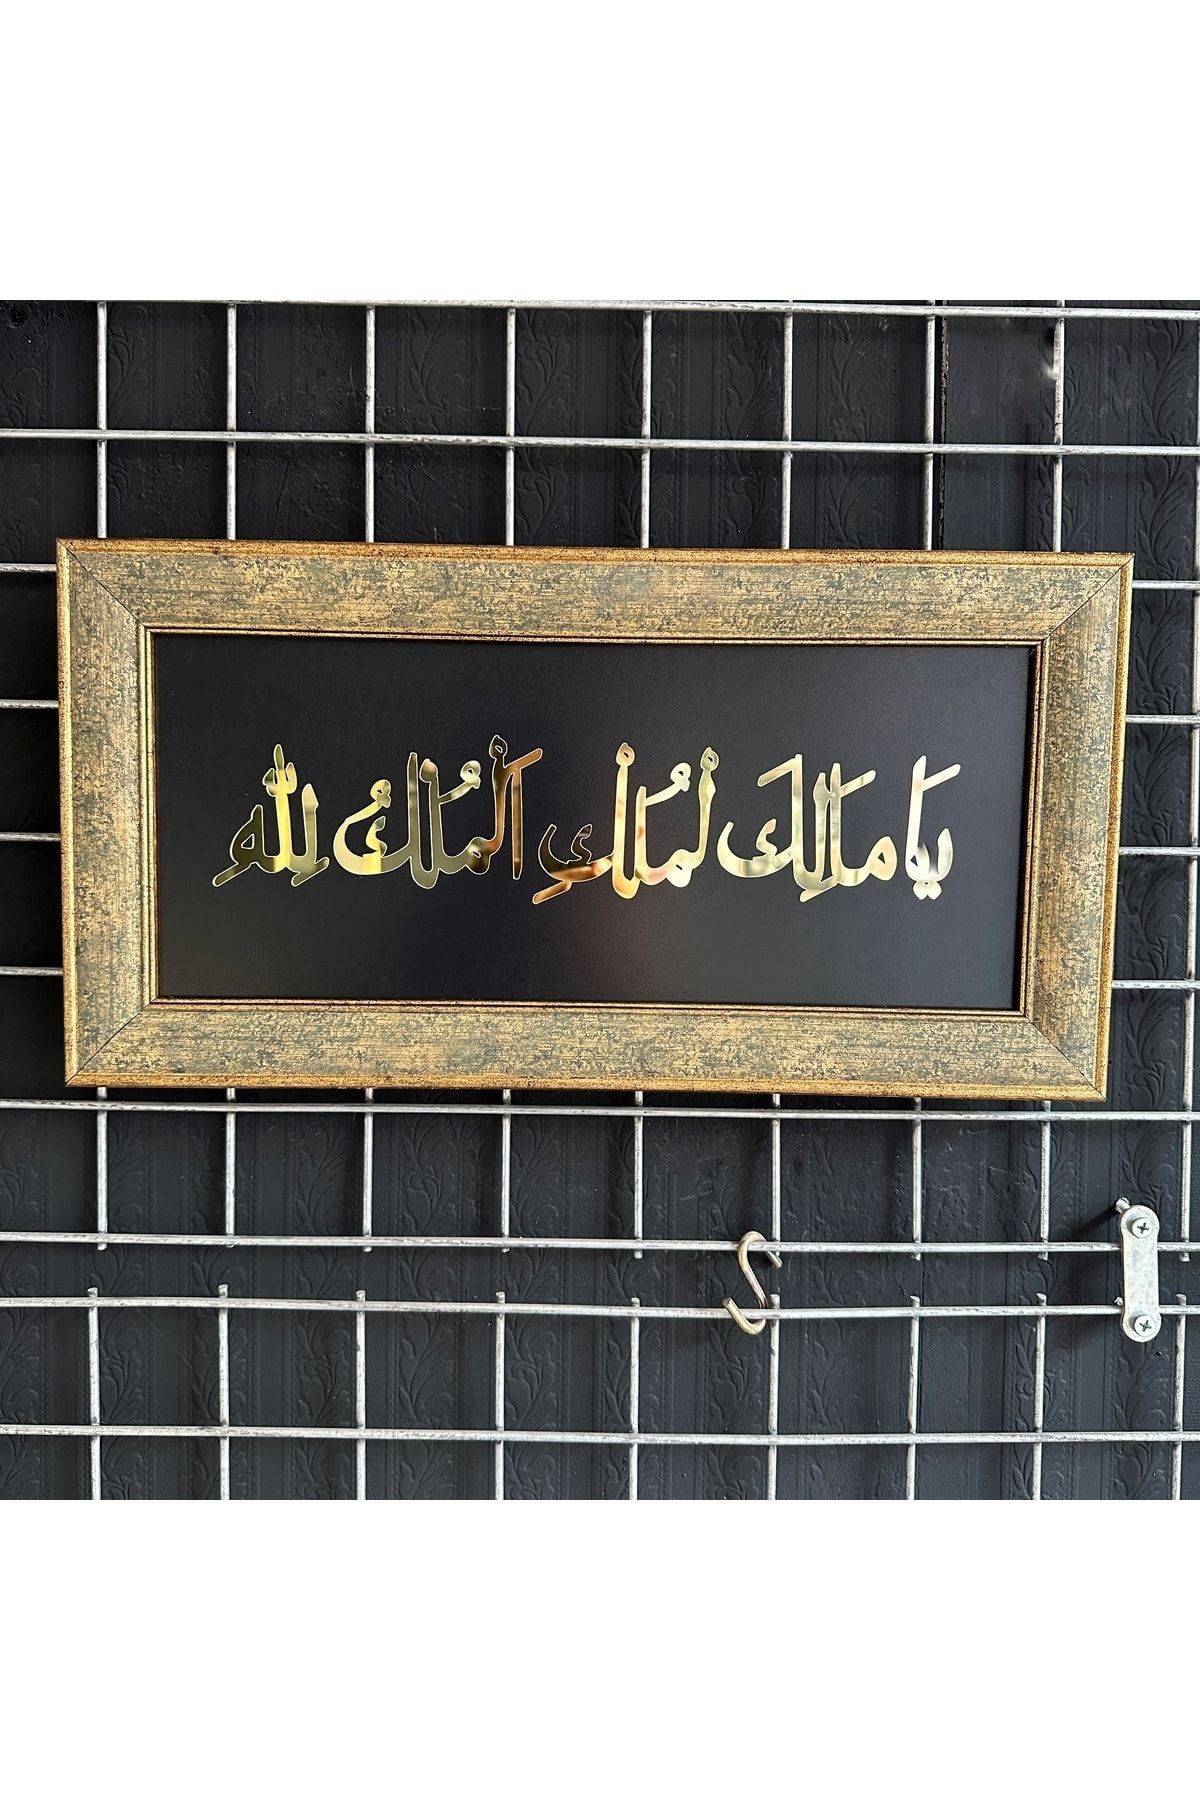 يَا مَالِكَ لْمُلْكِ اَلْمُلْكُ لِلّٰهِ